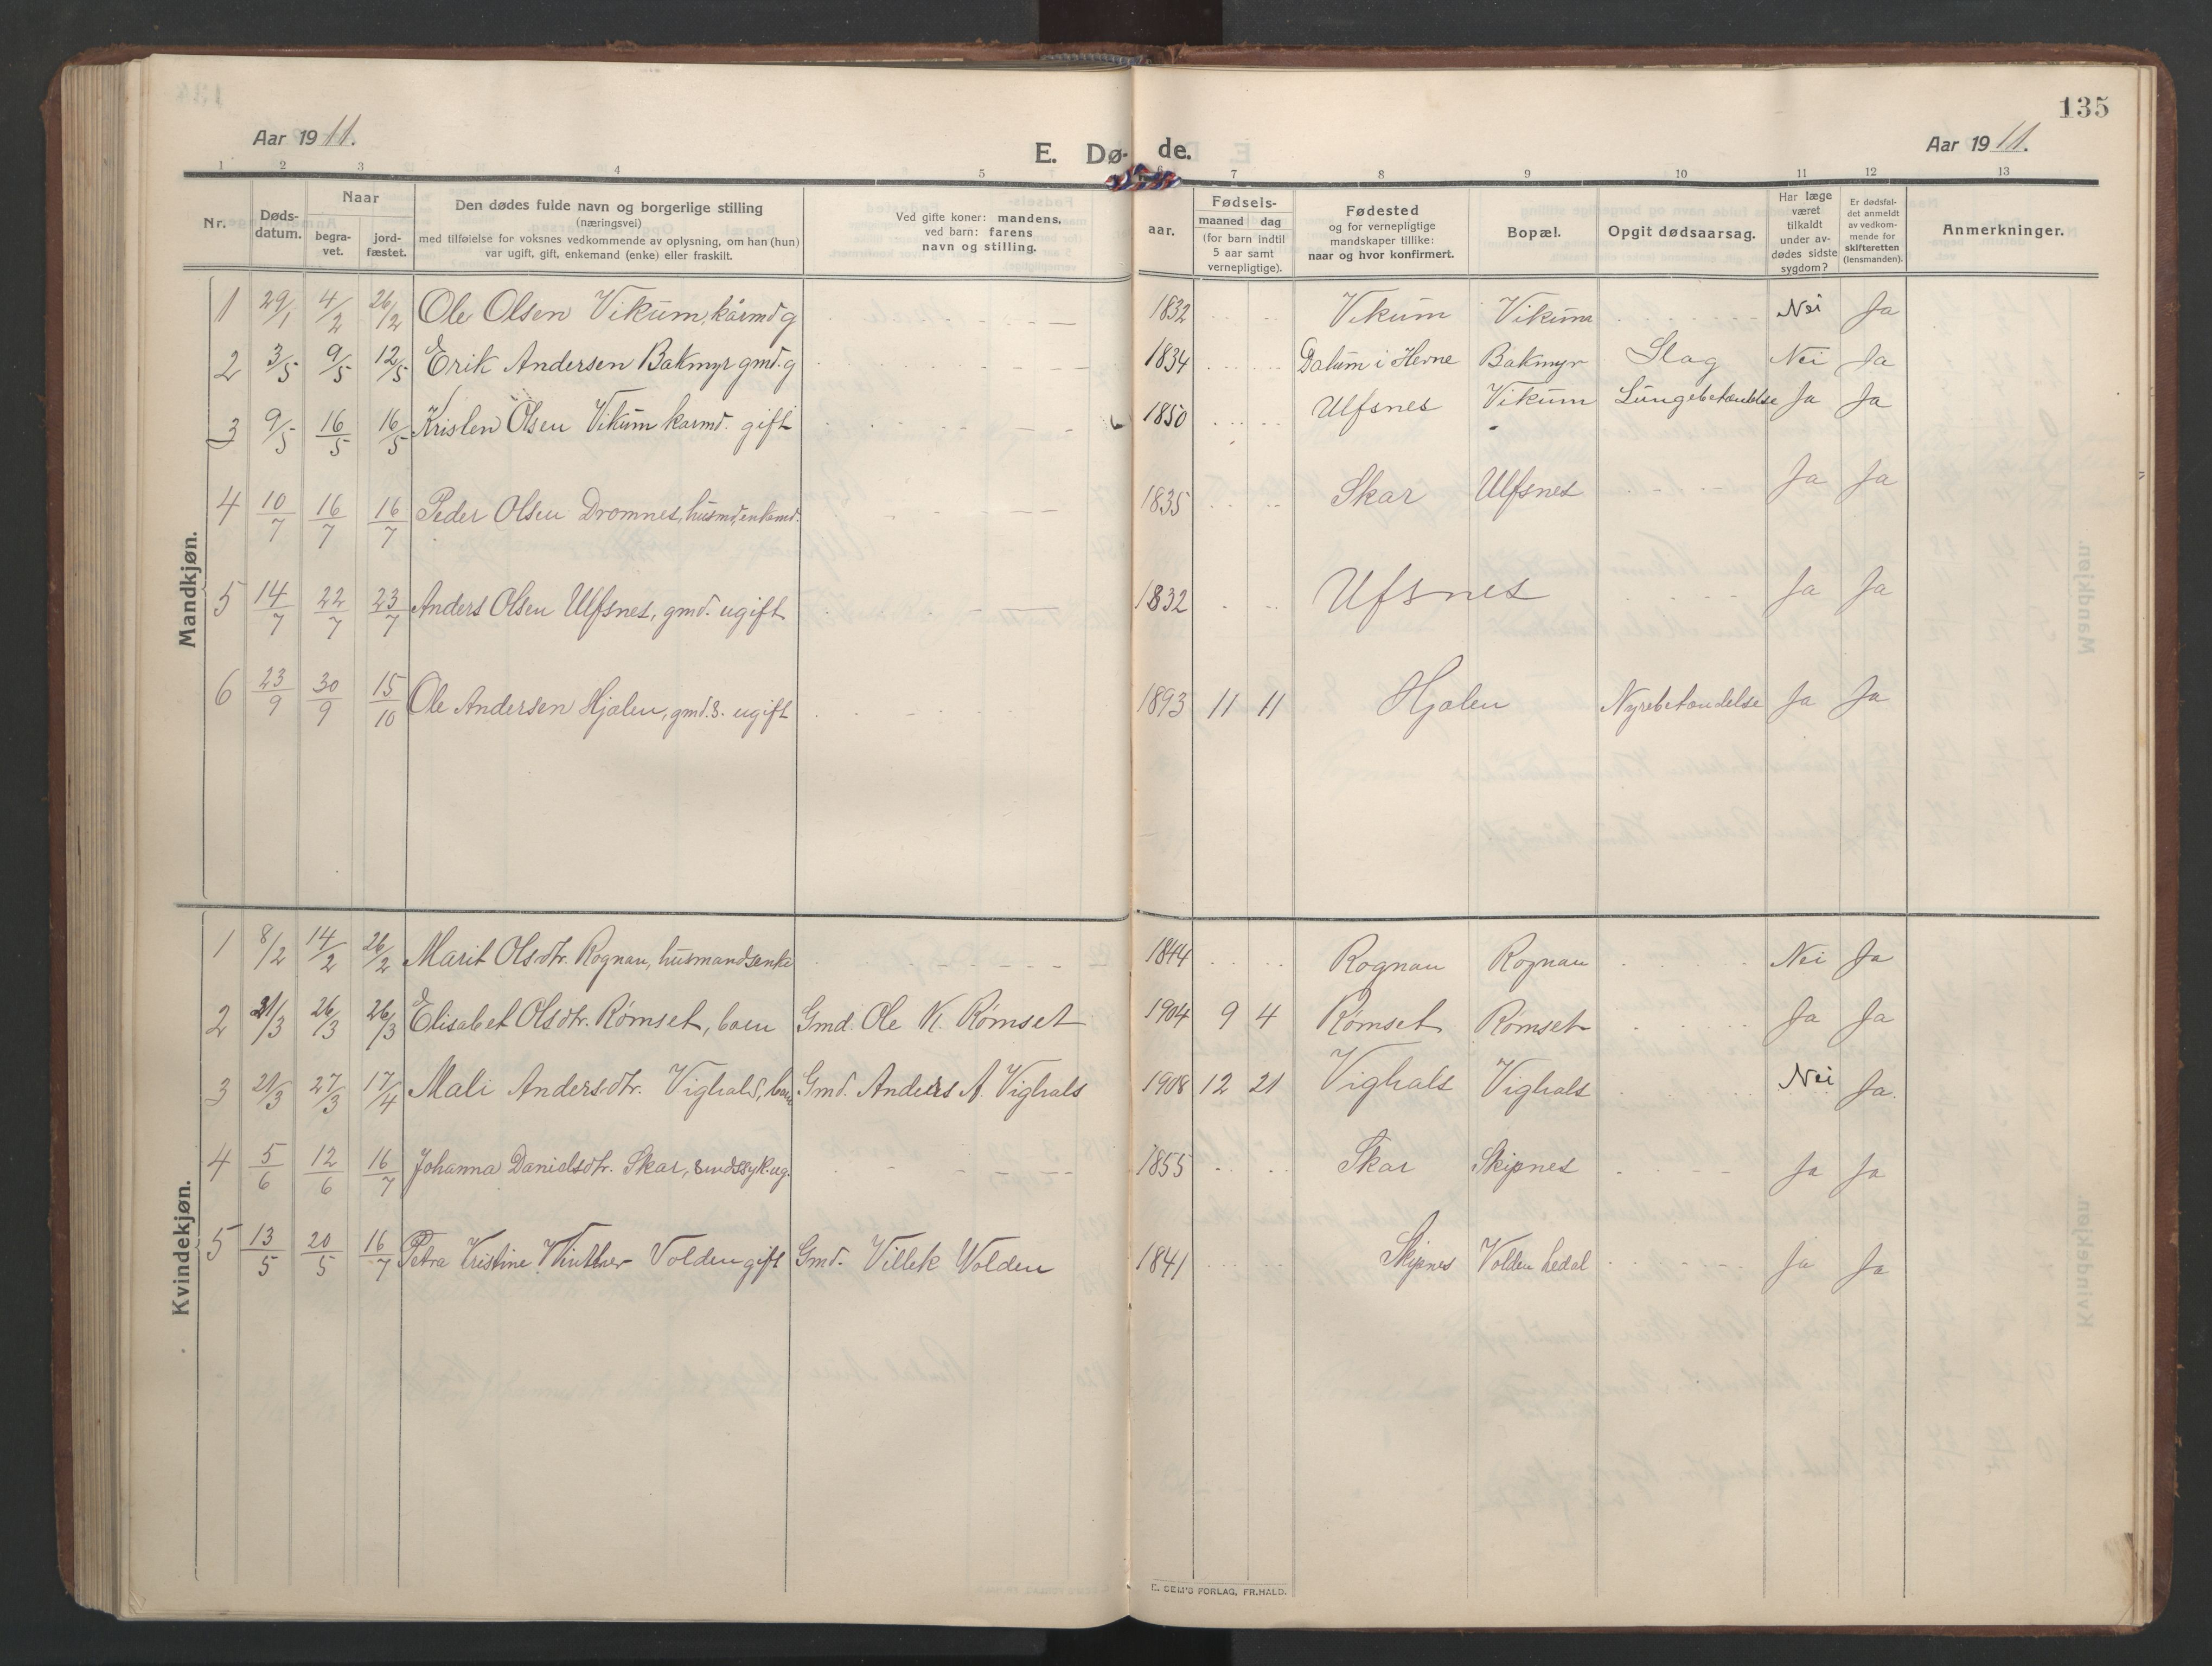 135
Aar 1911.
E. Dø- de.
Aar 1911.
1 2 3 4 5 6 7 8 9 10 11 12 13
Nr.
Døds-
datum.
Naar
begra-
vet.
jord-
fæstet.
Den dødes fulde navn og borgerlige stilling
(næringsvei)
med tilføielse for voksnes vedkommende av oplysning, om han (hun)
var ugift, gift, enkemand (enke) eller fraskilt.
Ved gifte koner: mandens,
ved barn: farens
navn og stilling.
Fødsels-
aar.
maaned dag
(for barn indtil
5 aar samt
vernepligtige).
Fødested
og for vernepligtige
mandskaper tillike:
naar og hvor konfirmert.
Bopæl.
Opgit dødsaarsag.
Har læge
været
tilkaldt
under av-
dødes sidste
sygdom?
Er dødsfal-
det anmeldt
av vedkom-
mende for
skifteretten
(lensmanden).
Anmerkninger.
Mandkjøn.
1 29/1 4/2 26/2 Ole Olsen Vikum, kårmd g 1832 Vikum Vikum Nei Ja
2 3/5 9/5 12/5 Erik Andersen Bakmyr gmd. g 1834 Dalum i Hevne Bakmyr Slag Nei Ja
3 9/5 16/5 16/5 Kristen Olsen Vikum karmd. gift 1850 Ulfsnes Vikum Lungebetændelse Ja Ja
4 10/7 16/7 16/7 Peder Olsen Dromnes, husmd, enkemd. 1835 Skar Ulfsnes Ja Ja
5 14/7 22/7 23/7 Anders Olsen Ulfsnes, gmd. ugift 1832 Ufsnes Ja Ja
6 23/9 30/9 15/10 Ole Andersen Hjalen, gmd.s. ugift 1893 11 11 Hjalen Nyrebetændelse Ja Ja
Kvindekjøn.
1 8/2 14/2 26/2 Marit Olsdtr. Rognan, husmandsenke 1844 Rognan Rognan Nei Ja
2 21/3 26/3 26/3 Elisabet Olsdtr. Rømset, barn Gmd. Ole K. Rømset 1904 9 4 Rømset Rømset Ja Ja
3 21/3 27/3 17/4 Mali Andersdtr. Vighals, barn Gmd. Anders A. Vighals 1908 12 21 Vighals Vighals Nei Ja.
4 5/6 12/6 16/7 Johanna Danielsdtr. Skar, sindssyk. ug. 1855 Skar Skipnes Ja Ja
5 13/5 20/5 16/7 Petra Kristine Winther Volden gift Gmd. Villek Wolden 1841 Skipnes Volden Ledal Ja Ja
E. SEM'S FORLAG, FR.HALD.